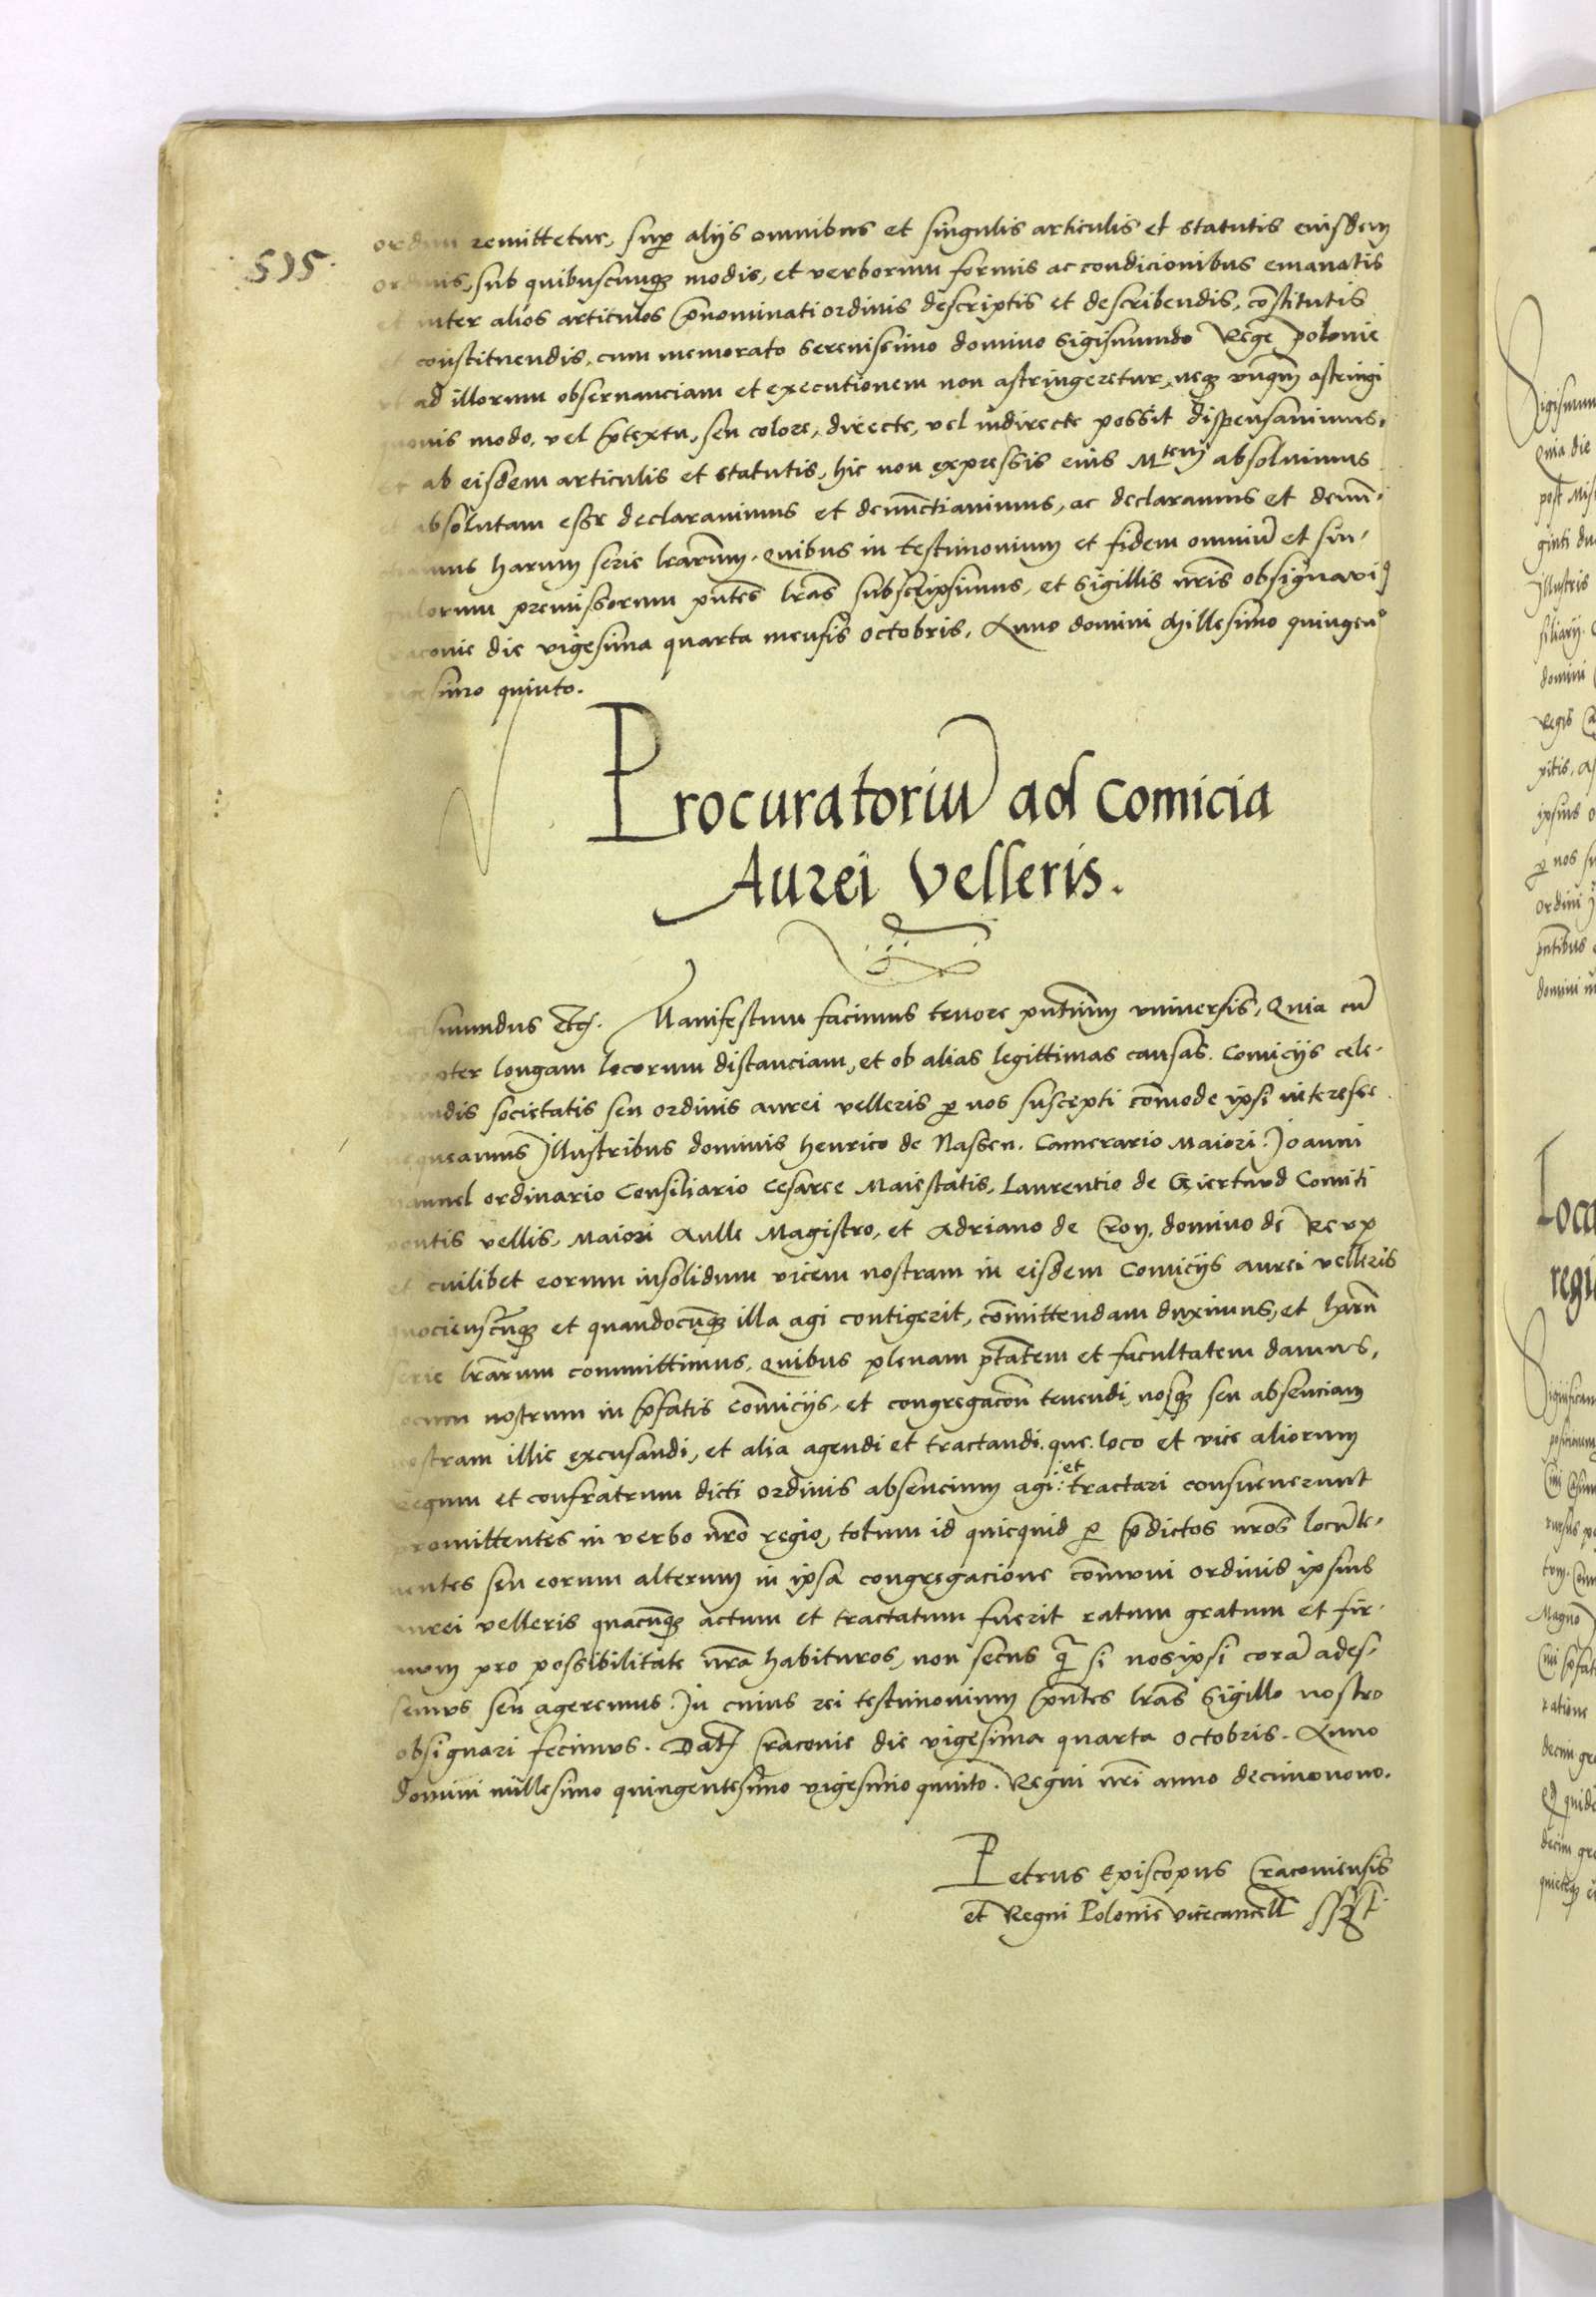 515.
remittetur, sup aliis omnibus et singulis articulis et statutis eiusdem
sub quibuscunq modis, et verborum formis ac condicionibus emanatis
inter alios articulos pnominati ordinis descriptis et describendis, constitutis
constituendis, cum memorato serenissimo domino Sigismundo Rege Polonie
ad illorum observanciam et executionem non astringeretur, neq unqm astringi
modo, vel ptextu, seu colore, directe, vel indirecte possit dispensavimus,
ab eisdem articulis et statutis, hic non expressis eius Mtem absolvimus
absolutam esse declaravimus et denunctiavimus, ac declaramus et denun-
harum serie lrarum. Quibus in testimonium et fidem omniu et sin-
premissorum pntes lras subscripsimus, et sigillis nris obsignavi
die vigesima quarta mensis Octobris, Anno domini Millesimo quingen°
quinto.
Procuratoriu ad Comicia
Aurei Velleris.
Etc. Manifestum facimus tenore pntium universis, Quia cu
longam locorum distanciam, et ob alias legittimas causas. Comiciis cele-
societatis seu ordinis aurei velleris p nos suscepti comode ipsi interesse
Illustribus dominis Henrico de Nassen. Camerario Maiori. Joanni
ordinario Consiliario Cesaree Maiestatis, Laurentio de Comiti
vellis, Maiori Aulle Magistro, et Adriano de Croy, domino de
et cuilibet eorum insolidum vicem nostram in eisdem Comiciis aurei velleris
et quandocunq illa agi contigerit, comittendam duximus, et haru
lrarum committimus, Quibus plenam ptatem et facultatem damus,
nostrum in pfatis Comiciis, et congregacon tenendi, nosq seu absenciam
nostram illic excusandi, et alia agendi et tractandi. que loco et vice aliorum
Regum et confratrum dicti ordinis absencium agi: et tractari consueverunt
promittentes in verbo nro regio, totum id quicquid p pdictos nros locute-
nentes seu eorum alterum in ipsa congregacione comuni ordinis ipsius
aurei velleris quacunq actum et tractatum fuerit ratum gratum et fir-
mum pro possibilitate nra habituros, non secus q si nosipsi cora ades-
semus seu ageremus. In cuius rei testimonium pntes lras Sigillo nostro
obsignari fecimus. Dat Cracovie die vigesima quarta Octobris. Anno
domini millesimo quingentesimo vigesimo quinto. Regni nri anno decimonono.
Petrus Episcopus Cracoviensis
et Regni Polonie vicecancell sspt